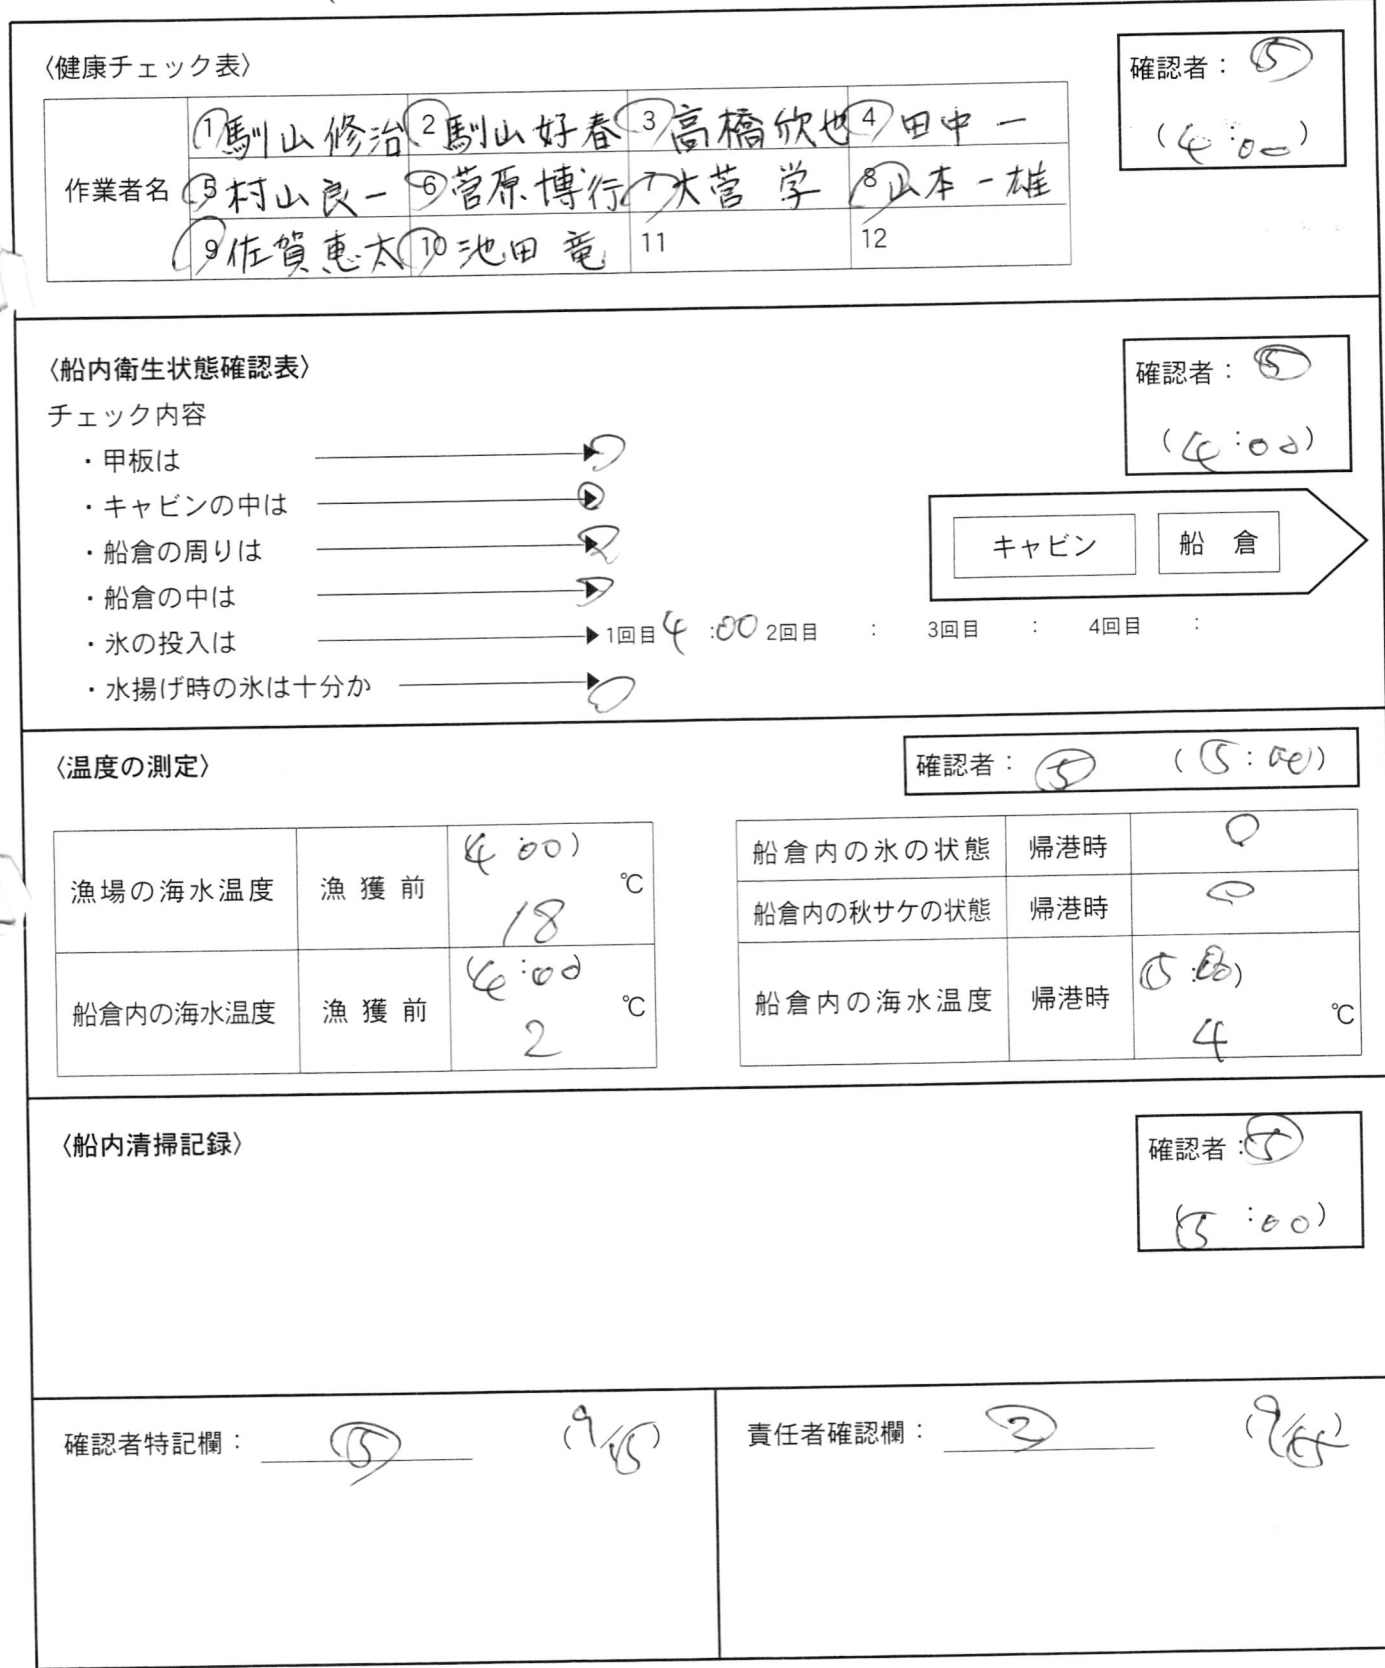 〈健康チェック表〉
確認者： ⑤
(4:00)
作業者名
①馴山修治 ②馴山好春 ③高橋欣也 ④田中一
⑤村山良一 ⑥菅原博行 ⑦大菅 学 ⑧山本一雄
⑨佐賀恵太 ⑩池田 竜 11 12
〈船内衛生状態確認表〉
確認者： ⑤
(4:00)
チェック内容
・甲板は ○
・キャビンの中は ○
・船倉の周りは
・船倉の中は ○
・氷の投入は 1回目 4:00 2回目 : 3回目 : 4回目 :
・水揚げ時の氷は十分か ○
キャビン 船 倉
〈温度の測定〉
確認者： ⑤ (5:00)
漁場の海水温度 漁獲前 (4:00) 18 ℃
船倉内の海水温度 漁獲前 (4:00 2 ℃
船倉内の氷の状態 帰港時 ○
船倉内の秋サケの状態 帰港時 ○
船倉内の海水温度 帰港時 (5:00) 4 ℃
〈船内清掃記録〉
確認者：⑤
(5:00)
確認者特記欄： ⑤ (9/15)
責任者確認欄： ② (9/15)